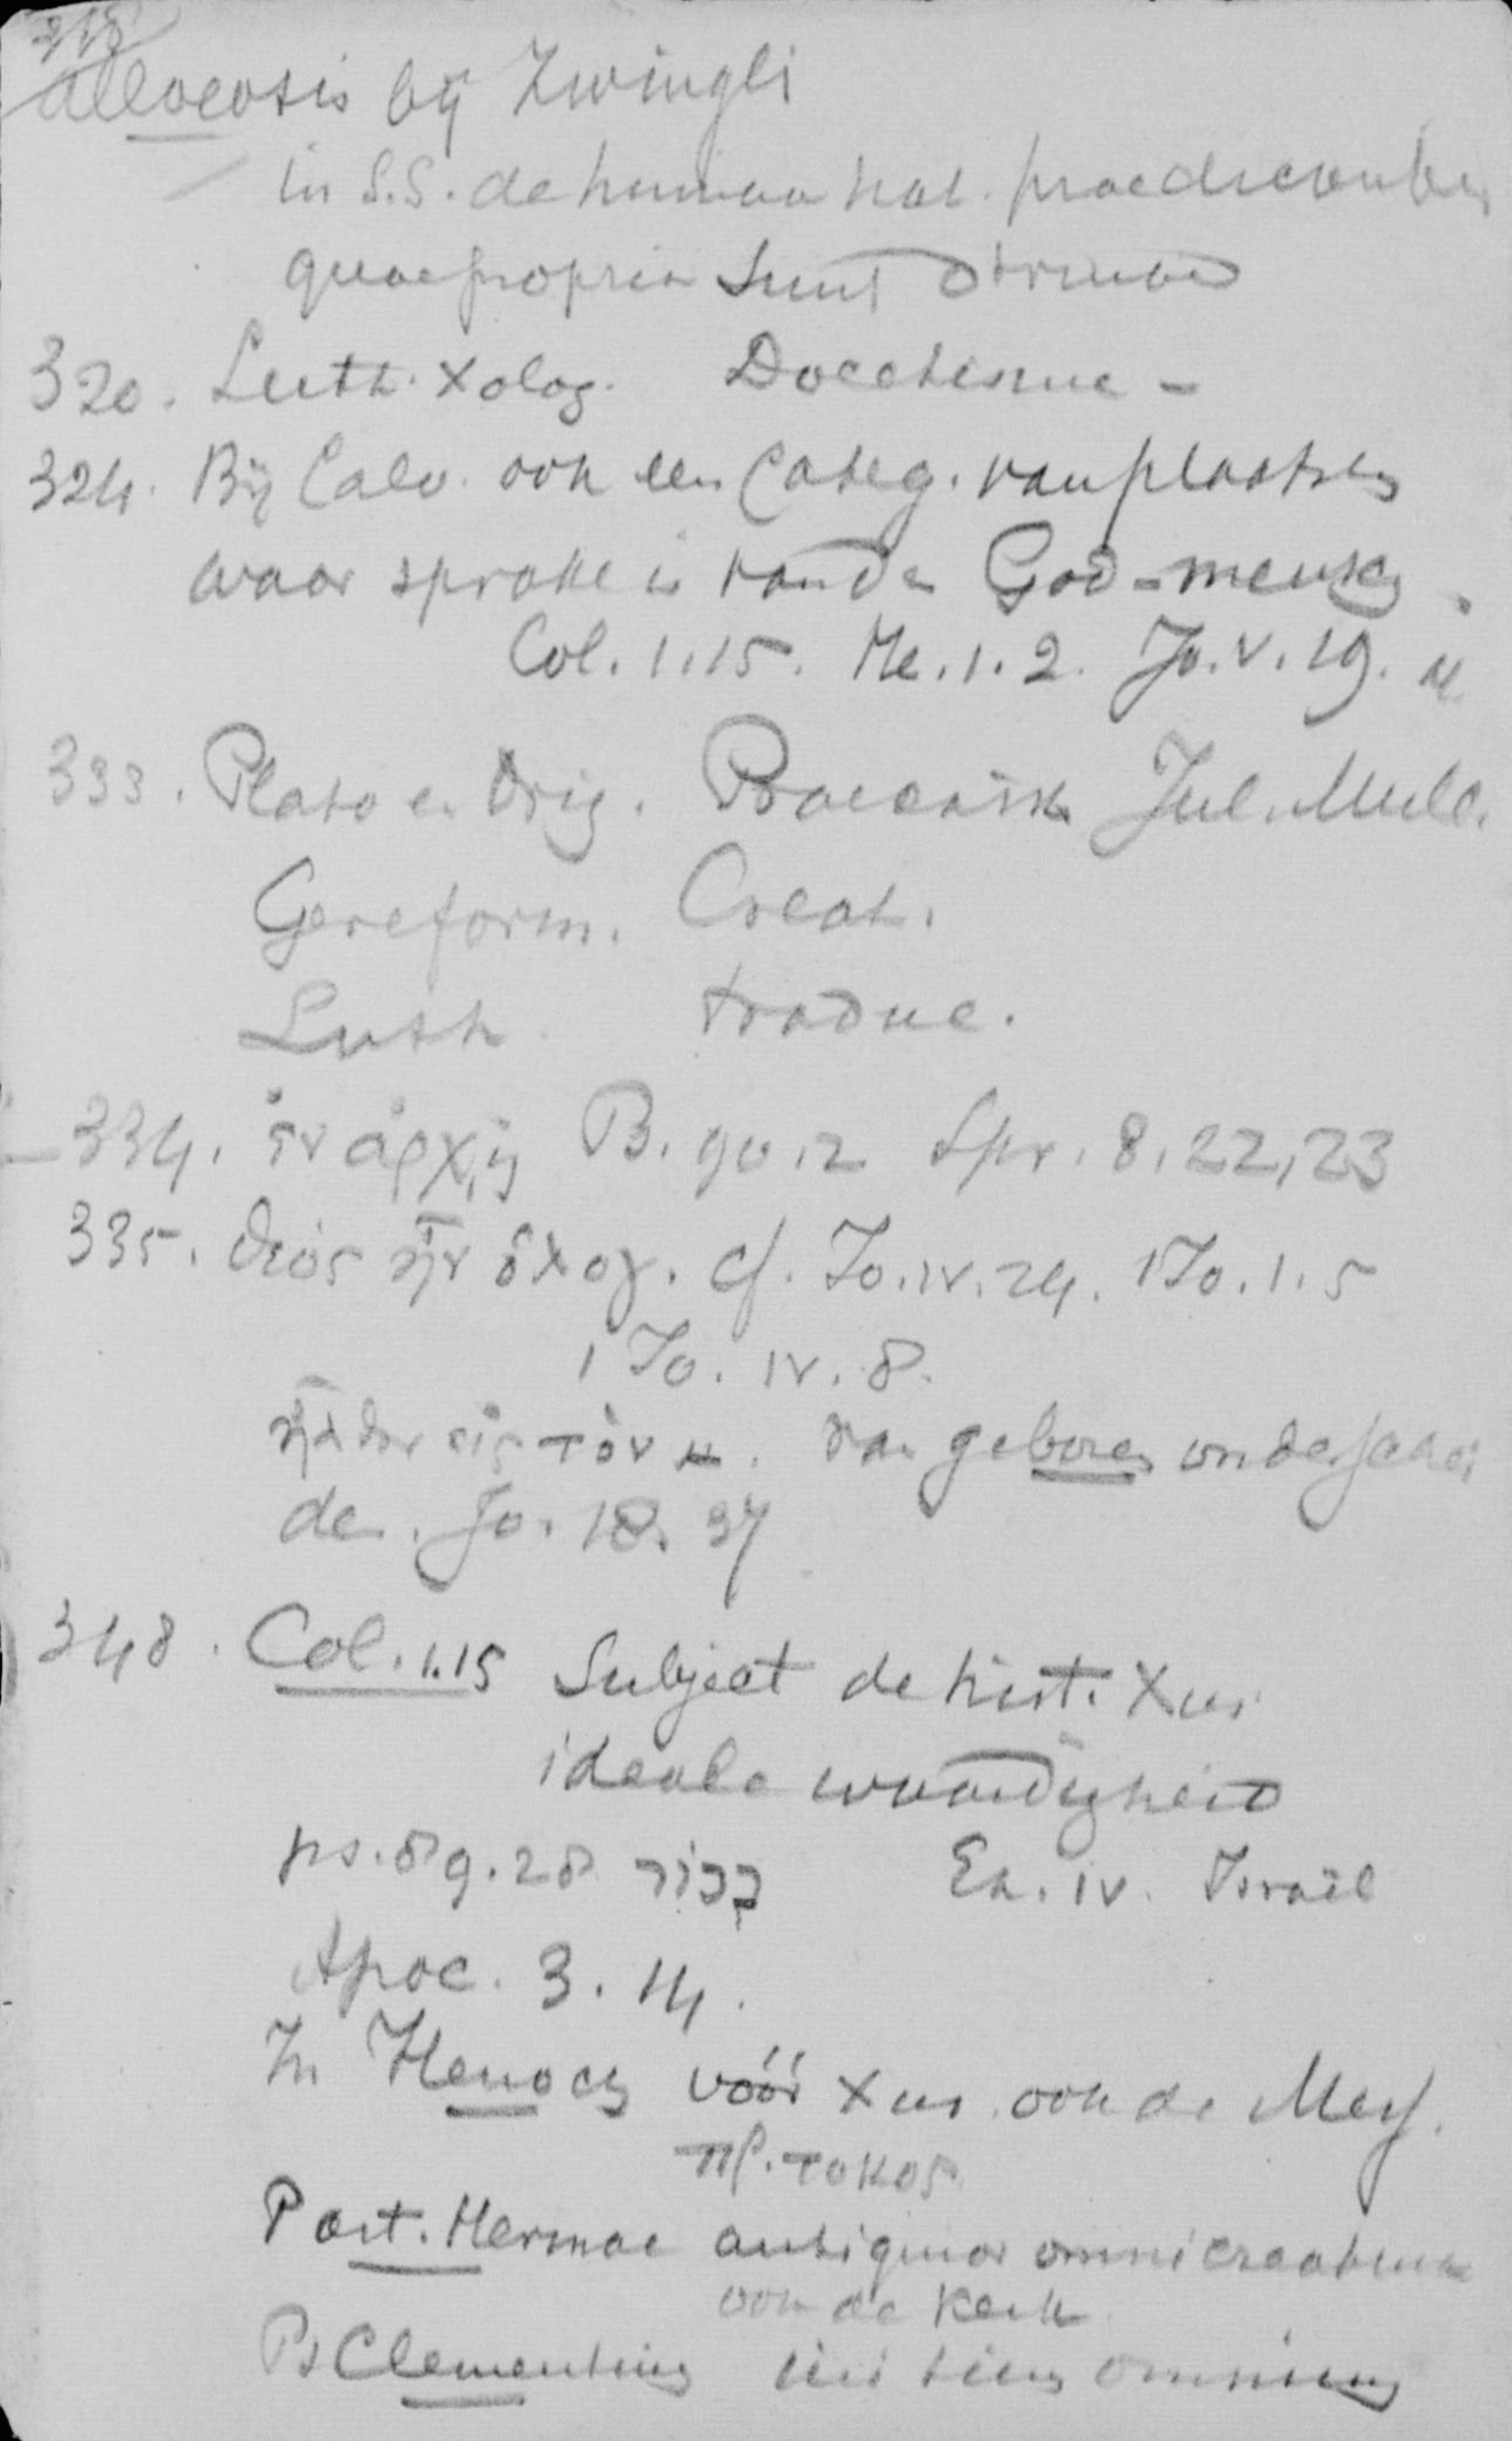 318
Alloeosis bij Zwingli
in S.S. de humana nat. praedicantur
quae propria sunt divinae
320. Luth. Xolog. Docetisme -
324. Bij Calv. ook een Categ. van plaatsen
waar sprake is van de God-mensch.
Col. 1.15. He. 1. 2. Jo. V. 19.
333. Plato en Orig. Praeexist. Jul. Mull.
Gereform. Creat.
Luth. traduc.
334. ἐν ἀρχῇ Spr. 8, 22, 23
335. θεὸς ἦν ὁ λογ. cf. Jo. IV. 24. 1 Jo. 1. 5
1 Jo. IV. 8.
ἦλθεν εἰς τὸν κ. van geboren onderschei
den. Jo. 18. 37
348. Col. 1.15 Subject de hist. Xus
ideale waardigheid
ps. 89. 28 בכור Ex. IV. Israël
Apoc. 3. 14.
In Henoch vóór Xus ook de Mess.
πρ. τοκος
Past. Hermae antiquior omni creatura
ook de Kerk
Ps Clementing initium omnium